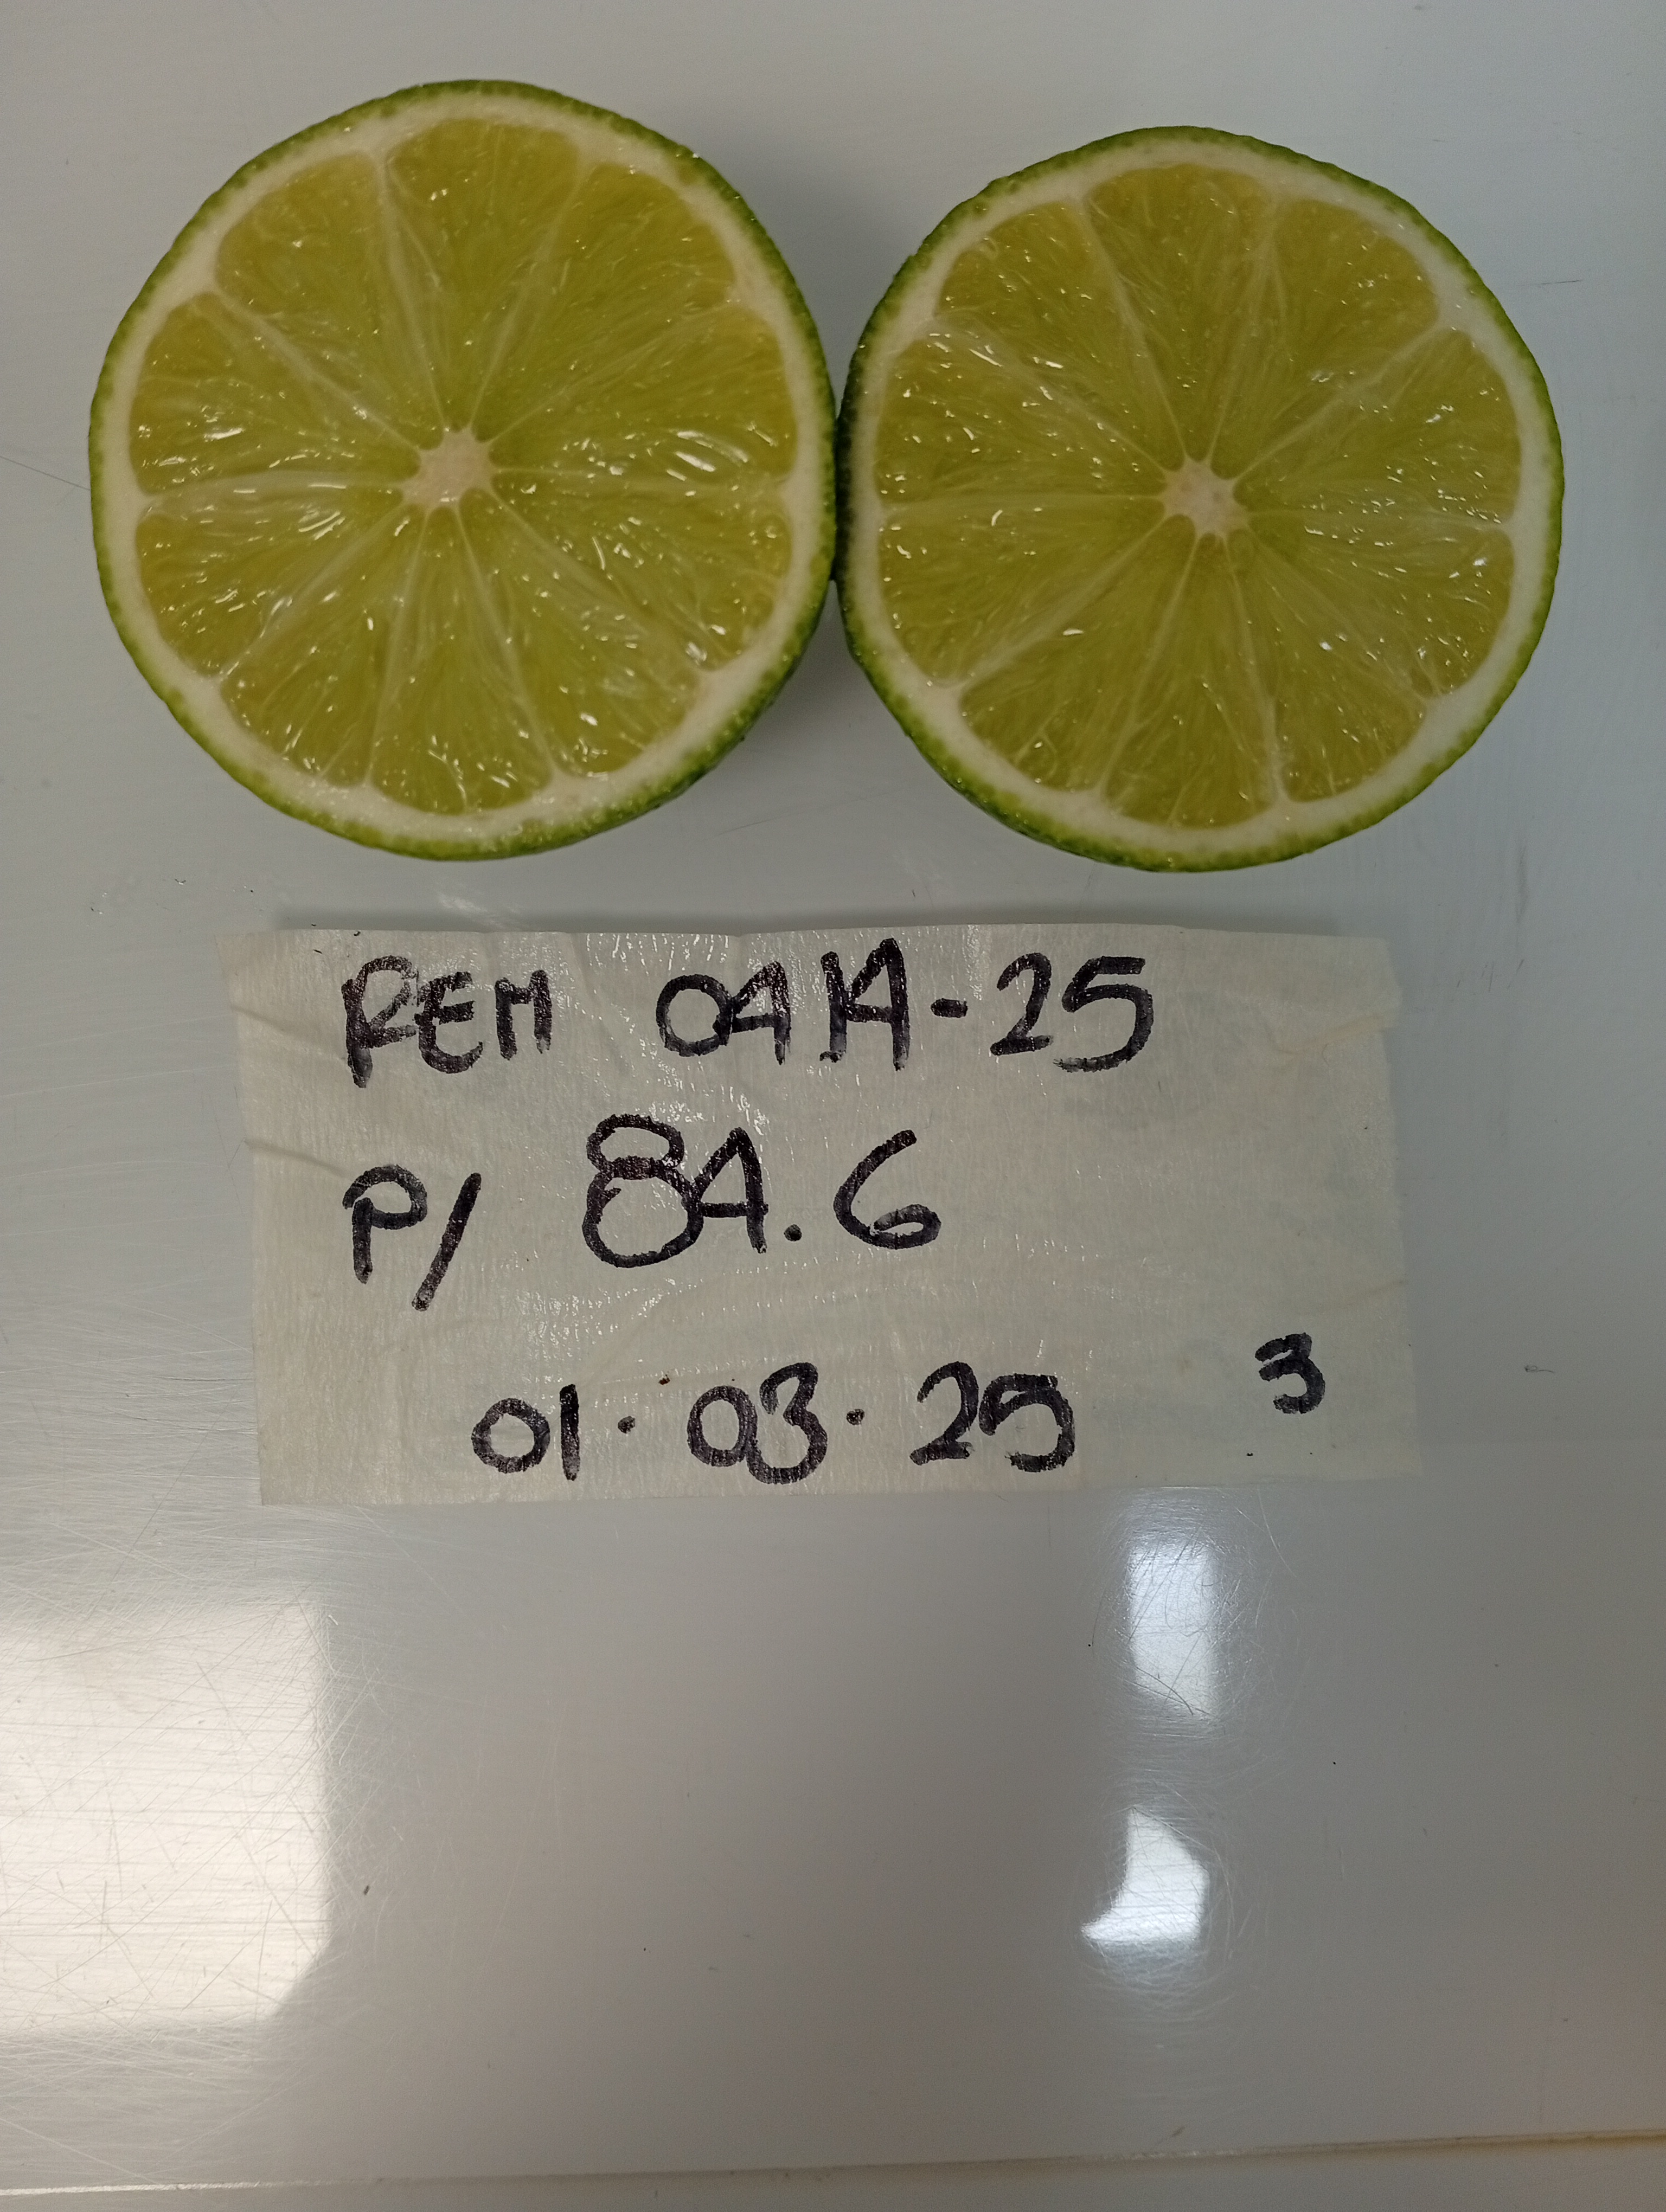 REM 0414-25
P/ 84.6
01.03.25 3